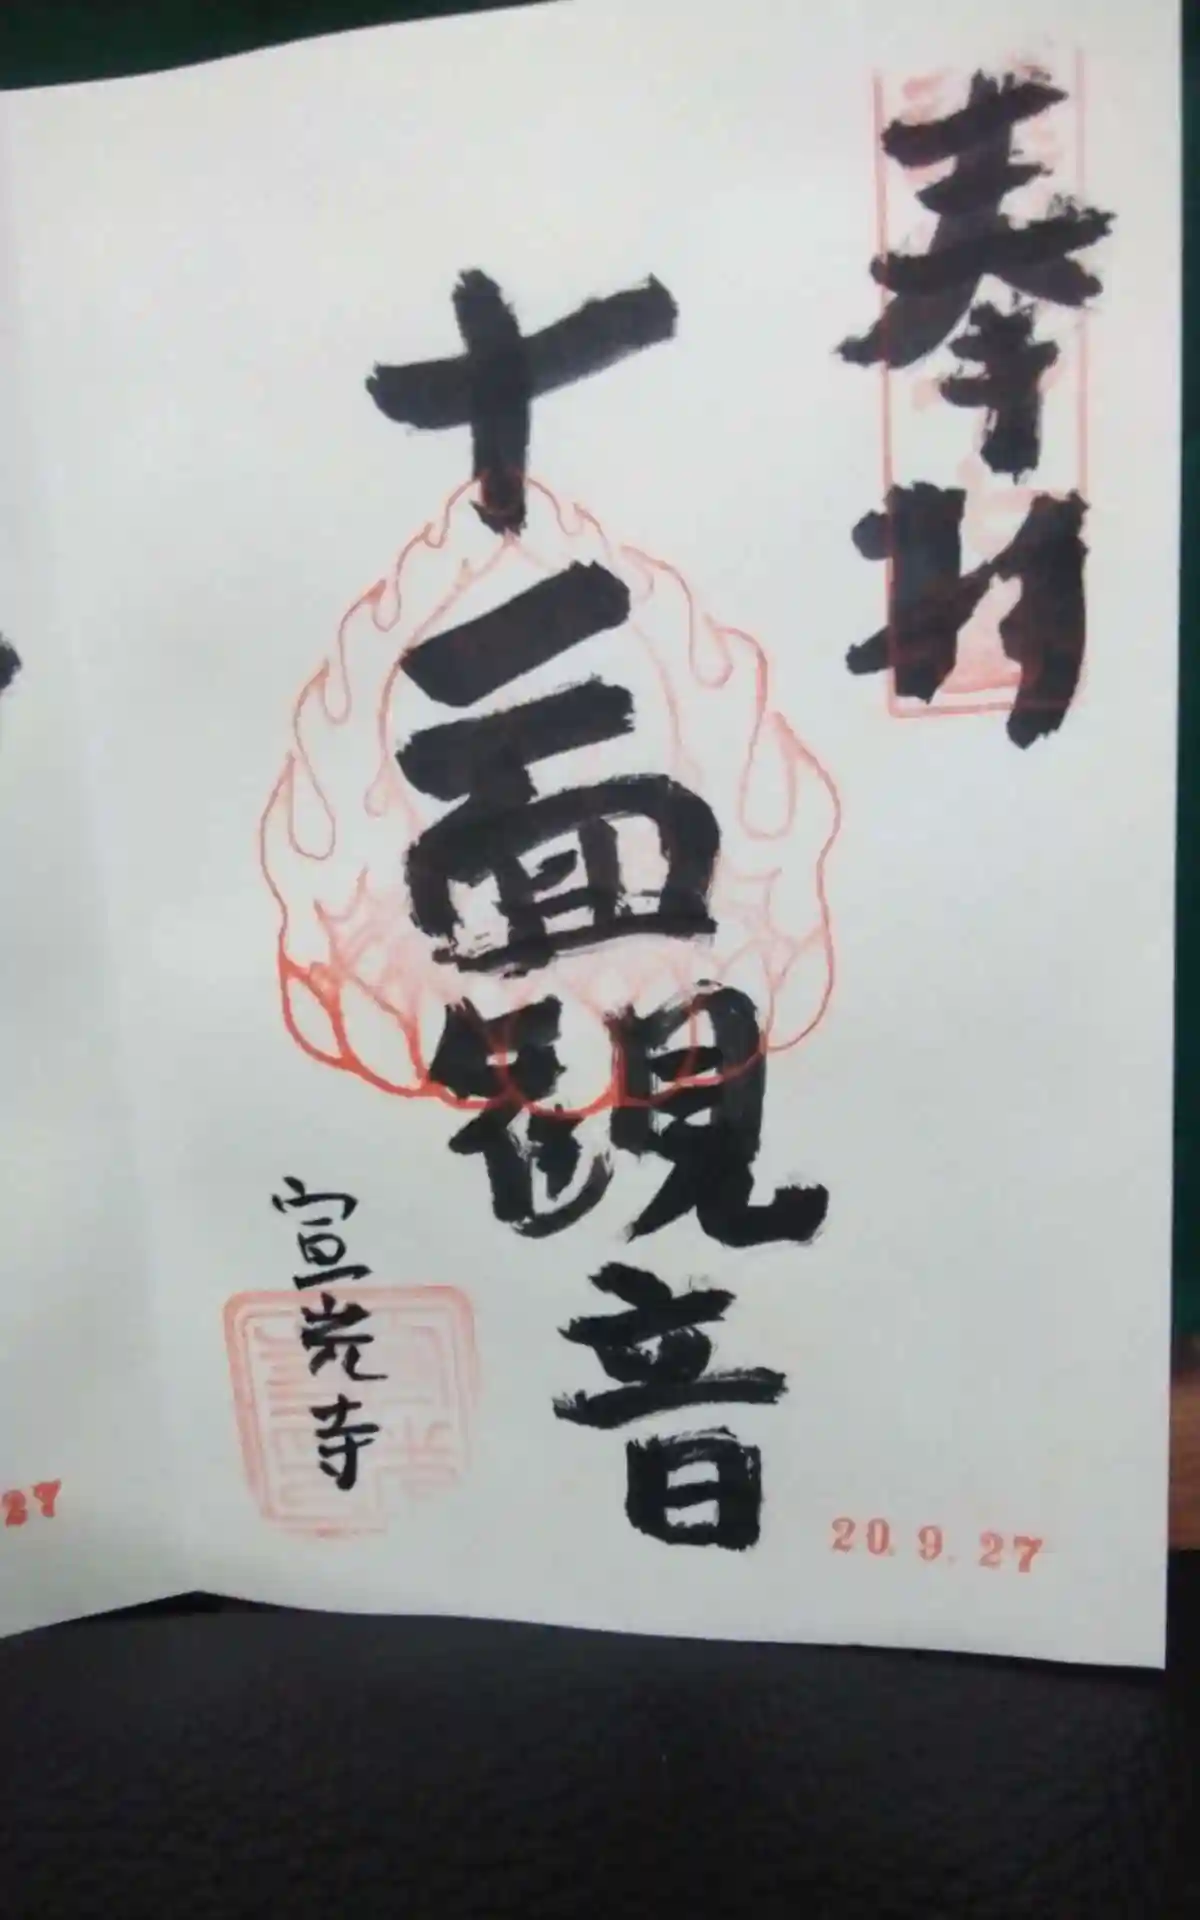 奉拝
十一面観音
宣光寺
20. 9. 27
27